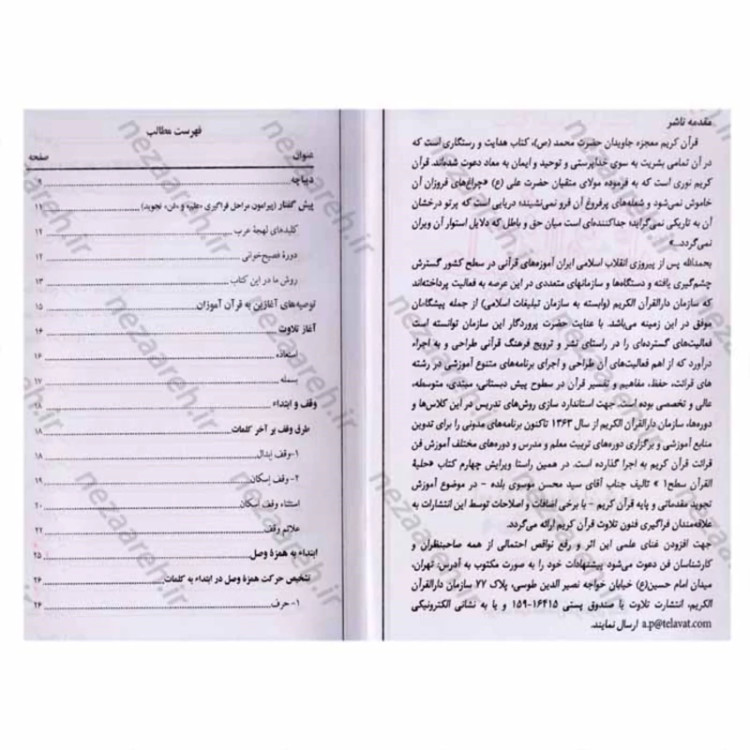 مقدمه ناشر
قرآن کریم معجزه جاویدان حضرت محمد (ص)، کتاب هدایت و رستگاری است که
در آن تمامی بشریت به سوی خداپرستی و توحید و ایمان به معاد دعوت شده‌اند. قرآن
کریم نوری است که به فرموده مولای متقیان حضرت علی (ع) «چراغ‌های فروزان آن
خاموش نمی‌شود و شعله‌های پرفروغ آن فرو نمی‌نشیند؛ دریایی است که پرتو درخشان
آن به تاریکی نمی‌گراید؛ جداکننده‌ای است میان حق و باطل که دلایل استوار آن ویران
نمی‌گردد...»
بحمدالله پس از پیروزی انقلاب اسلامی ایران آموزه‌های قرآنی در سطح کشور گسترش
چشم‌گیری یافته و دستگاه‌ها و سازمانهای متعددی در این عرصه به فعالیت پرداخته‌اند
که سازمان دارالقرآن الکریم (وابسته به سازمان تبلیغات اسلامی) از جمله پیشگامان
موفق در این زمینه می‌باشد. با عنایت حضرت پروردگار این سازمان توانسته است
فعالیت‌های گسترده‌ای را در راستای نشر و ترویج فرهنگ قرآنی طراحی و به اجراء
درآورد که از اهم فعالیت‌های آن طراحی و اجرای برنامه‌های متنوع آموزشی در رشته
های قرائت، حفظ، مفاهیم و تفسیر قرآن در سطوح پیش دبستانی، مبتدی، متوسطه،
عالی و تخصصی بوده است. جهت استاندارد سازی روش‌های تدریس در این کلاس‌ها و
دوره‌ها، سازمان دارالقرآن الکریم از سال ۱۳۶۳ تاکنون برنامه‌های مدونی را برای تدوین
منابع آموزشی و برگزاری دوره‌های تربیت معلم و مدرس و دوره‌های مختلف آموزش فن
قرائت قرآن کریم به اجرا گذارده است. در همین راستا ویرایش چهارم کتاب «حلیة
القرآن سطح۱ » تالیف جناب آقای سید محسن موسوی بلده - در موضوع آموزش
تجوید مقدماتی و پایه قرآن کریم - با برخی اضافات و اصلاحات توسط این انتشارات به
علاقه‌مندان فراگیری فنون تلاوت قرآن کریم ارائه می‌گردد.
جهت افزودن غنای علمی این اثر و رفع نواقص احتمالی از همه صاحبنظران و
کارشناسان فن دعوت می‌شود پیشنهادات خود را به صورت مکتوب به آدرس: تهران،
میدان امام حسین(ع) خیابان خواجه نصیر الدین طوسی، پلاک ۷۷ سازمان دارالقرآن
الکریم، انتشارت تلاوت با صندوق پستی ۱۶۴۱۵-۱۵۹ و یا به نشانی الکترونیکی
a.p@telavat.com ارسال نمایند.
فهرست مطالب
عنوان صفحه
دیباچه ۹
پیش گفتار (پیرامون مراحل فراگیری «علم» و «فن» تجوید) ۱۱
کلیدهای لهجهٔ عرب ۱۲
دورهٔ فصیح‌خوانی ۱۲
روش ما در این کتاب ۱۳
توصیه‌های آغازین به قرآن آموزان ۱۵
آغاز تلاوت ۱۶
استعاذه ۱۶
بسمله ۱۷
وقف و ابتداء ۱۸
طرق وقف بر آخر کلمات ۱۸
۱-وقف اِبدال ۱۸
۲- وقف اِسکان ۲۰
استثناء وقف اسکان ۲۰
علائم وقف ۲۲
ابتداء به همزهٔ وصل ۲۵
تشخیص حرکت همزهٔ وصل در ابتداء به کلمات ۲۶
۱- حرف ۲۶
nezaareh.ir
nezaareh.ir
nezaareh.ir
nezaareh.ir
nezaareh.ir
nezaareh.ir